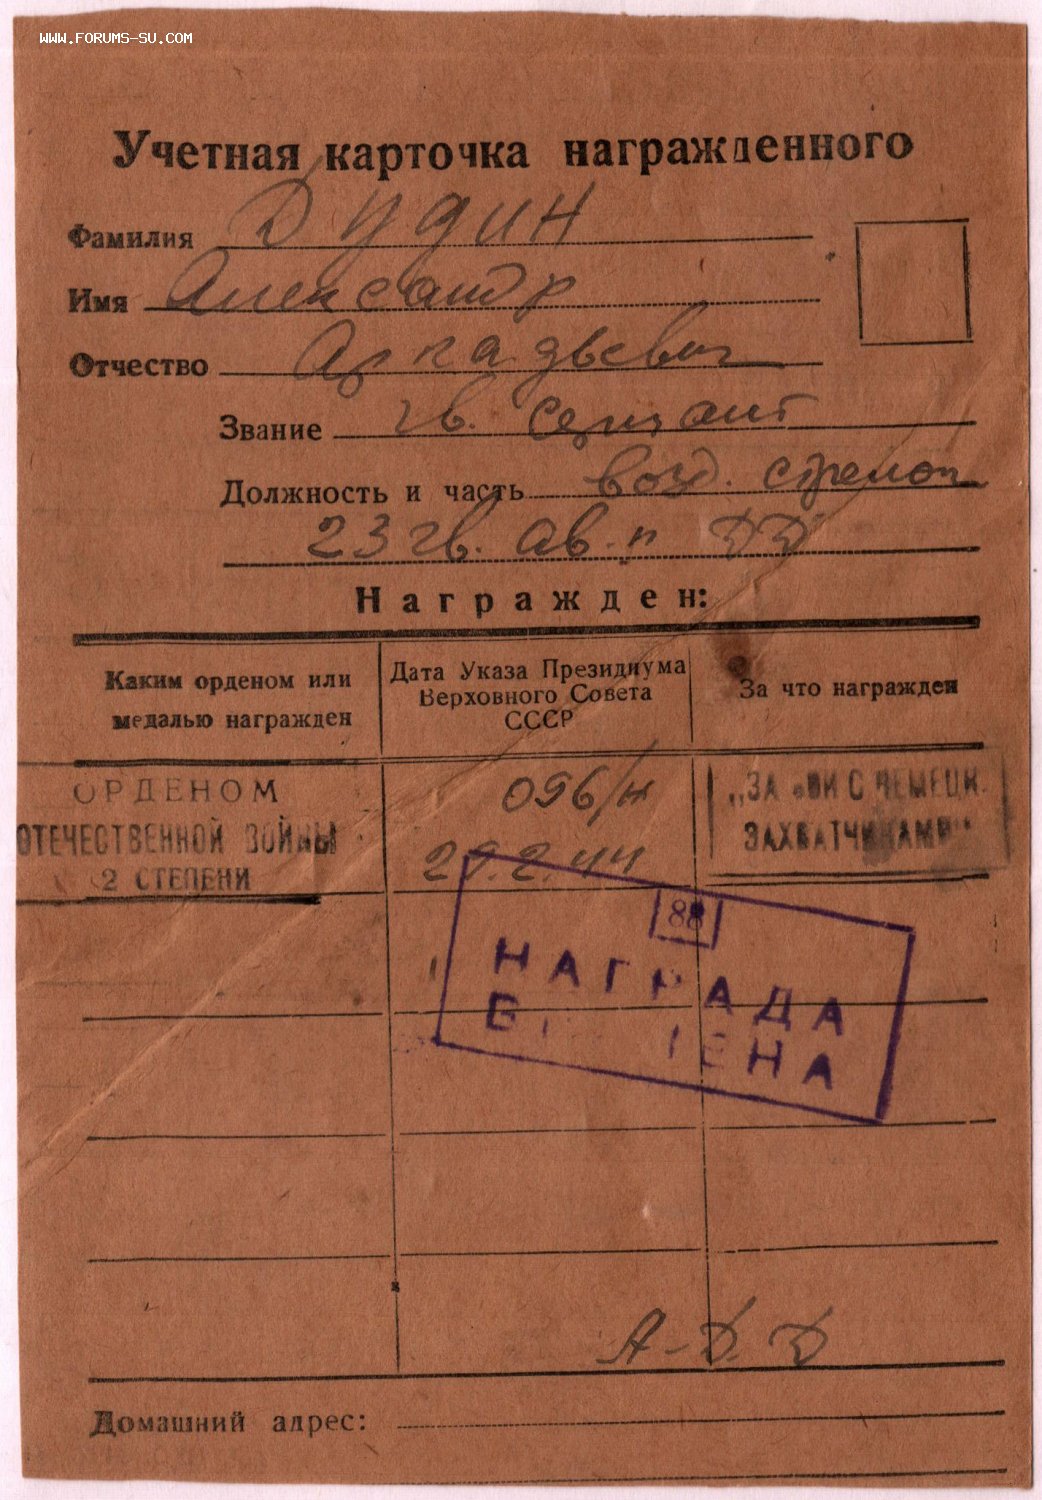 WWW.FORUMS-SU.COM
Учетная карточка награжденного
Фамилия Дудин
Имя Александр
Отчество Аркадьевич
Звание гв. сержант
Должность и часть возд. стрелок
23 гв. ав. п ДД
Награжден:
Каким орденом или
медалью награжден
Дата Указа Президиума
Верховного Совета
СССР
За что награжден
ОРДЕНОМ
ОТЕЧЕСТВЕННОЙ ВОЙНЫ
2 СТЕПЕНИ
096/н
29.2.44
„ЗА БОИ С НЕМЕЦК.
ЗАХВАТЧИКАМИ"
88
НАГРАДА
А-Д.Д
Домашний адрес: